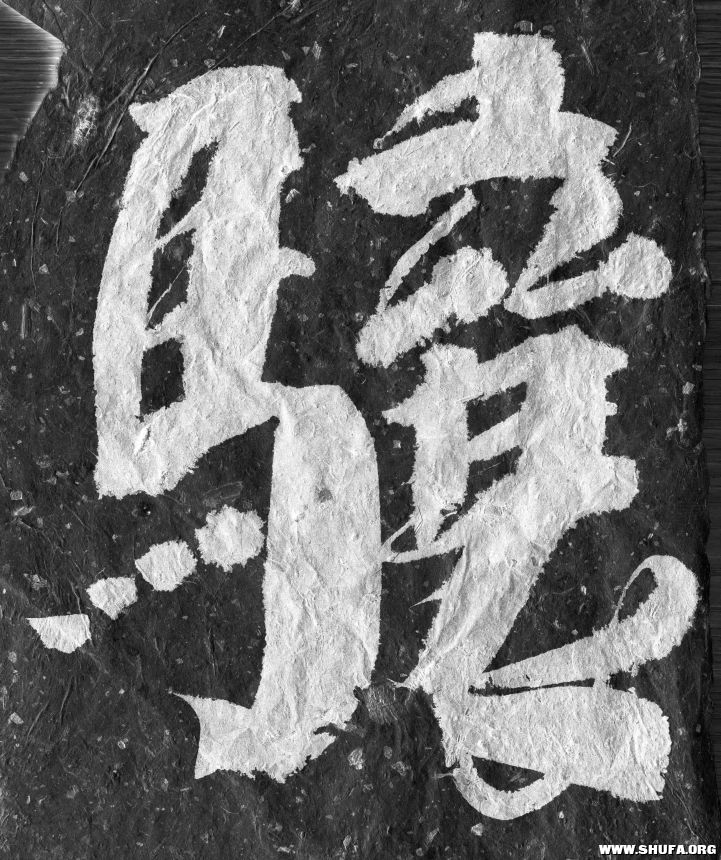 驤
WWW.SHUFA.ORG